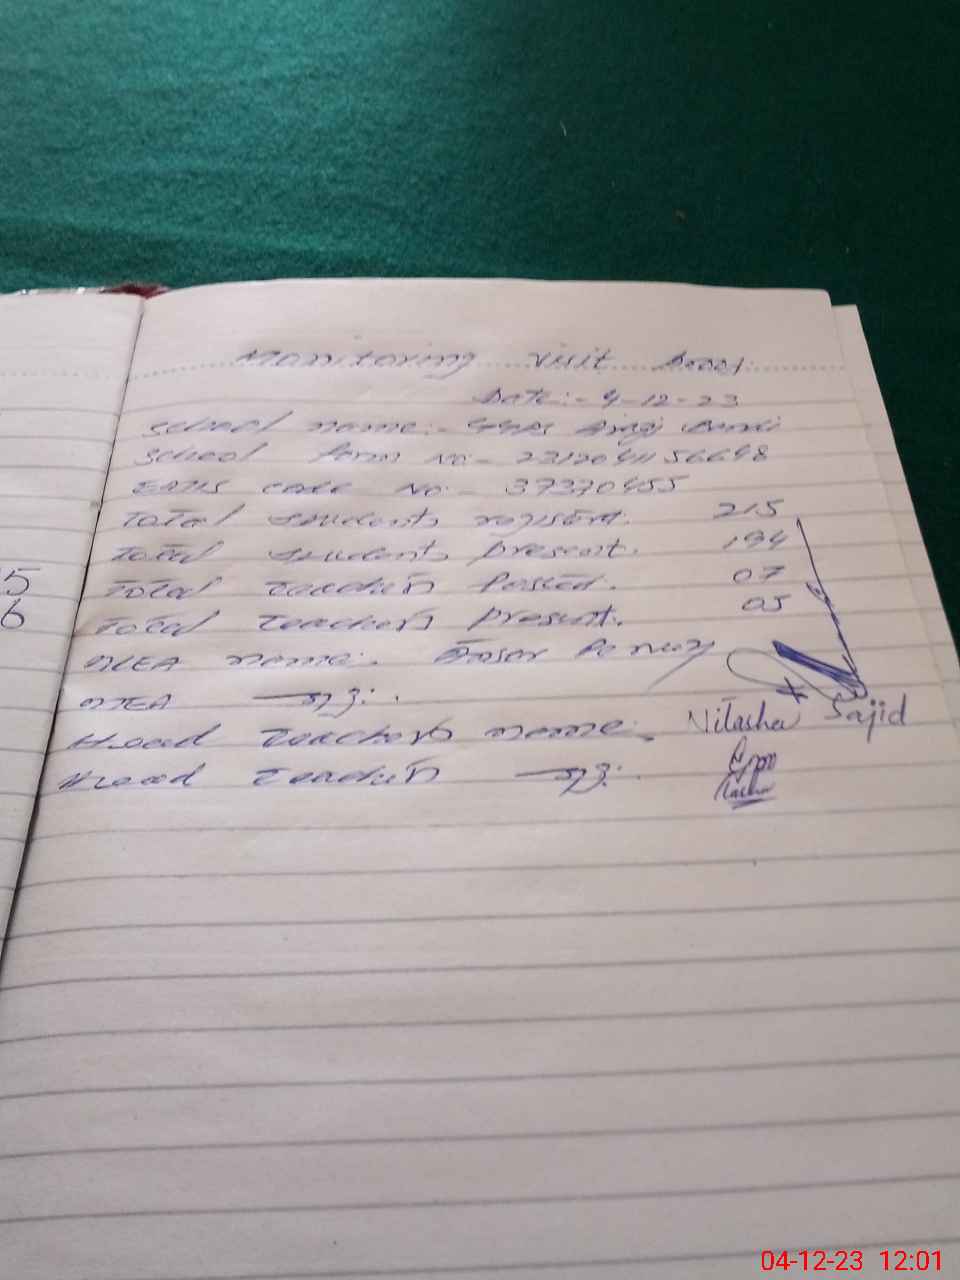 5
6
Monitoring visit
Date:- 4-12-23
School name:-
School form No:- 231204156648
EMIS code No:- 37370455
Total students register. 215
Total students present. 194
Total teachers Posted. 07
Total teachers present. 05
MEA name:.
MEA sig:.
Head teachers name. Nilasha Sajid
Head teachers sig:.
04-12-23 12:01